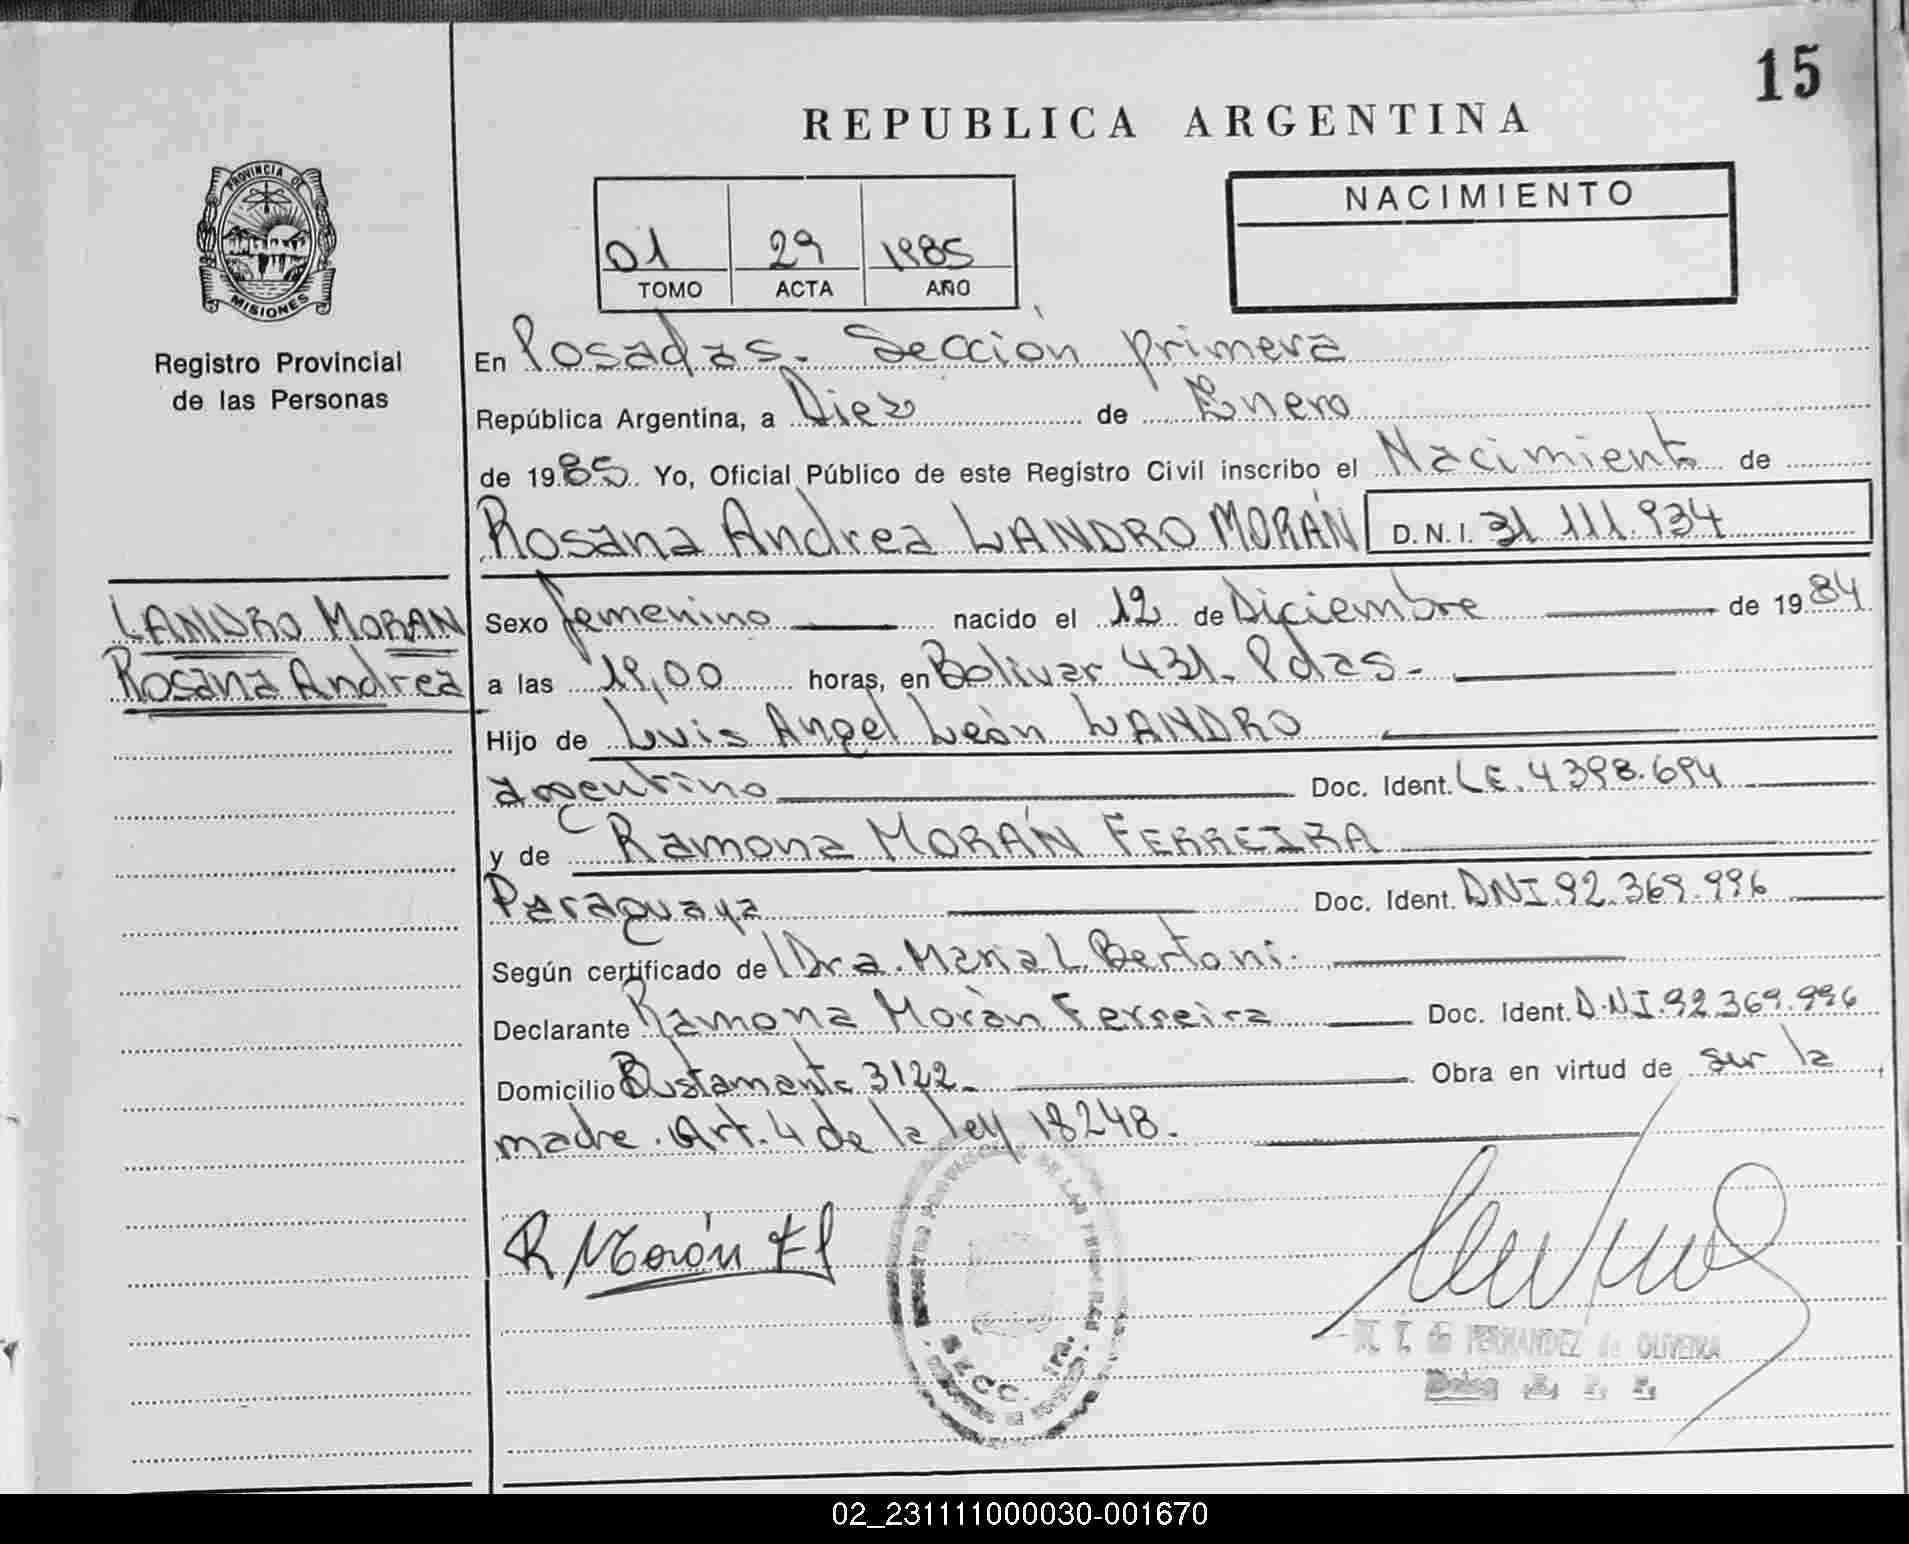 15
REPUBLICA ARGENTINA
PROVINCIA DE
MISIONES
Registro Provincial
de las Personas
01 29 1985
TOMO ACTA AÑO
NACIMIENTO
En Posadas. Sección primera
República Argentina, a Diez de Enero
de 1985. Yo, Oficial Público de este Registro Civil inscribo el Nacimiento de
Rosana Andrea LANDRO MORÁN D.N.I. 31.111.934
LANDRO MORAN
Rosana Andrea
Sexo femenino nacido el 12 de Diciembre de 1984
a las 19,00 horas, en Bolivar 431. Pdas.-
Hijo de Luis Angel León LANDRO
argentino Doc. Ident. L.E. 4.398.694
y de Ramona MORÁN FERREIRA
Paraguaya Doc. Ident. DNI.92.369.996
Según certificado de Dra. Maria L. Bertoni.
Declarante Ramona Morán Ferreira Doc. Ident. D.NI.92.369.996
Domicilio Bustamante 3122- Obra en virtud de ser la
madre. Art. 4 de la ley 18248.-
R Morón
SECC. 1ra.
M. T. de FERNANDEZ de OLIVEIRA
02_231111000030-001670